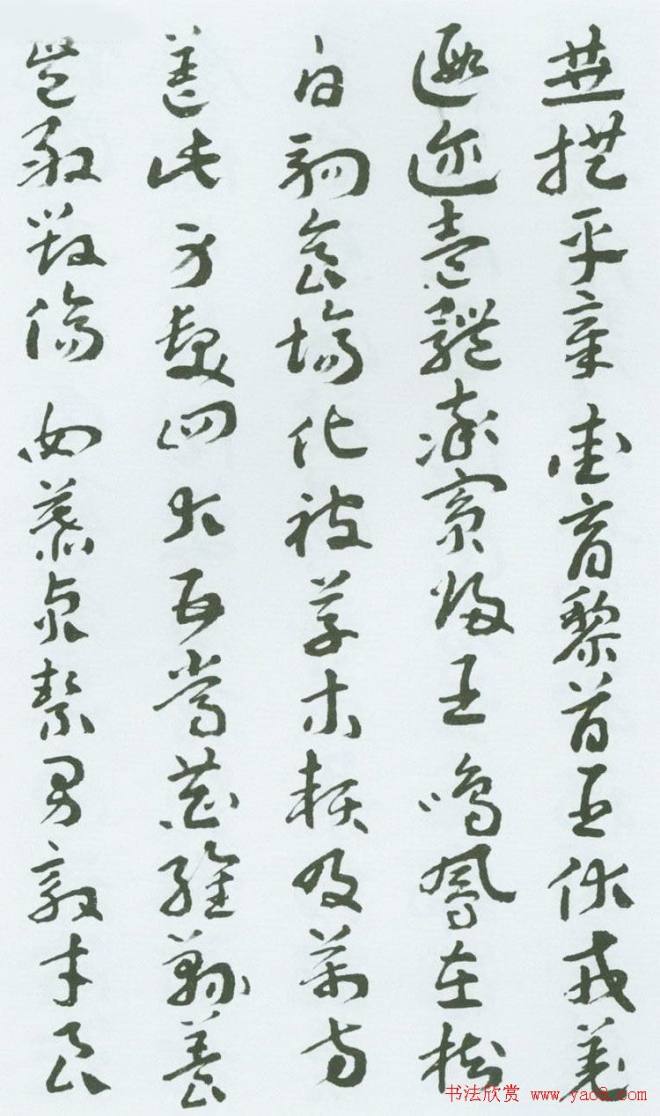 垂拱平章愛育黎首臣伏戎羌
遐邇壹體率賓歸王鳴鳳在樹
白駒食場化被草木賴及萬方
蓋此身髮四大五常恭惟鞠養
豈敢毀傷女慕貞絜男效才良
书法欣赏 www.yac8.com